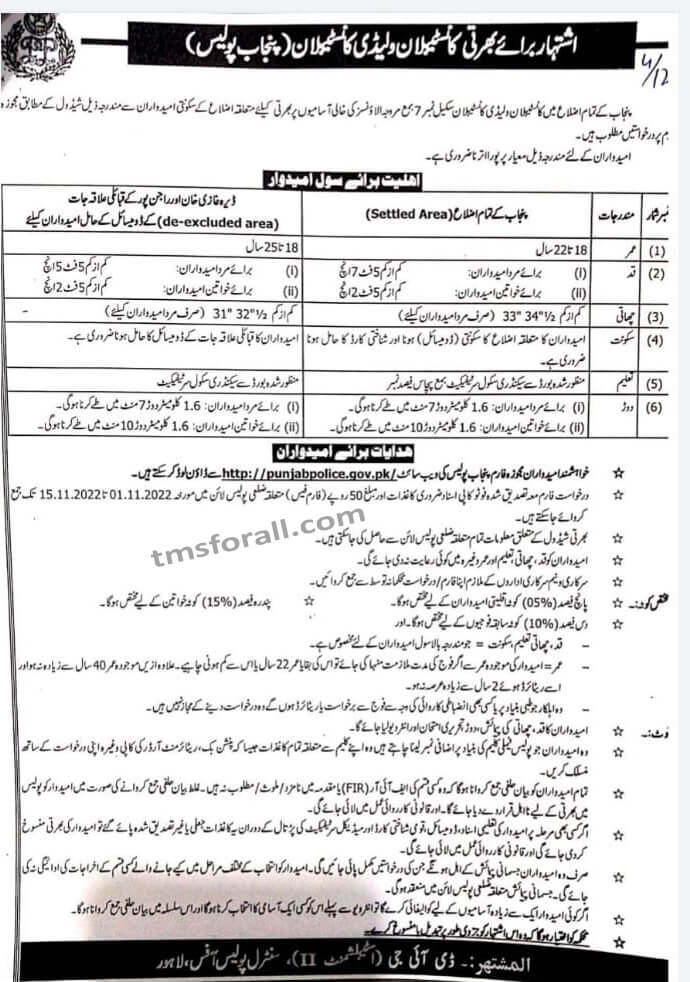 اشتہار برائے بھرتی کانسٹیبلان ولیڈی کانسٹیبلان (پنجاب پولیس)
4/12
پنجاب کے تمام اضلاع میں کانسٹیبلان ولیڈی کانسٹیبلان سکیل نمبر 7 بمع مروجہ الاؤنسز کی خالی آسامیوں پر بھرتی کیلئے متعلقہ اضلاع کے سکونتی امیدواران سے مندرجہ ذیل شیڈول کے مطابق مجوزہ
م پر درخواستیں مطلوب ہیں۔
امیدواران کے لئے مندرجہ ذیل معیار پر پورا اترنا ضروری ہے۔
اہلیت برائے سول امیدوار
نمبر شمار مندرجات پنجاب کے تمام اضلاع (Settled Area) ڈیرہ غازی خان اور راجن پور کے قبائلی علاقہ جات
(de-excluded area) کے ڈومیسائل کے حامل امیدواران کیلئے
(1) عمر 18 تا 22 سال 18 تا 25 سال
(2) قد (i) برائے مرد امیدواران: کم از کم 5 فٹ 7 انچ (i) برائے مرد امیدواران: کم از کم 5 فٹ 5 انچ
(ii) برائے خواتین امیدواران: کم از کم 5 فٹ 2 انچ (ii) برائے خواتین امیدواران: کم از کم 5 فٹ 2 انچ
(3) چھاتی کم از کم 33" 34½" (صرف مرد امیدواران کیلئے) کم از کم 31" 32½" (صرف مرد امیدواران کیلئے)
(4) سکونت امیدواران کا متعلقہ اضلاع کا سکونتی (ڈومیسائل) ہونا اور شناختی کارڈ کا حامل ہونا امیدواران کا قبائلی علاقہ جات کے ڈومیسائل کا حامل ہونا ضروری ہے۔
ضروری ہے۔
(5) تعلیم منظور شدہ بورڈ سے سیکنڈری سکول سرٹیفکیٹ بمع پچاس فیصد نمبر منظور شدہ بورڈ سے سیکنڈری سکول سرٹیفکیٹ
(6) دوڑ (i) برائے مرد امیدواران: 1.6 کلومیٹر دوڑ 7 منٹ میں طے کرنا ہوگی۔ (i) برائے مرد امیدواران: 1.6 کلومیٹر دوڑ 7 منٹ میں طے کرنا ہوگی۔
(ii) برائے خواتین امیدواران: 1.6 کلومیٹر دوڑ 10 منٹ میں طے کرنا ہوگی۔ (ii) برائے خواتین امیدواران: 1.6 کلومیٹر دوڑ 10 منٹ میں طے کرنا ہوگی۔
ھدایات برائے امیدواران
☆ خواہشمند امیدواران مجوزہ فارم پنجاب پولیس کی ویب سائٹ http://punjabpolice.gov.pk/ سے ڈاؤن لوڈ کر سکتے ہیں۔
☆ درخواست فارم معہ تصدیق شدہ فوٹو کاپی اسناد و ضروری کاغذات اور مبلغ 50 روپے (فارم فیس) متعلقہ ضلعی پولیس لائن میں مورخہ 01.11.2022 تا 15.11.2022 تک جمع
کروائے جا سکتے ہیں۔
tmsforall.com
☆ بھرتی شیڈول کے متعلق معلومات تمام متعلقہ ضلعی پولیس لائن سے حاصل کی جا سکتی ہیں۔
☆ امیدواران کو قد، چھاتی، تعلیم اور عمر وغیرہ میں کوئی رعایت نہ دی جائے گی۔
☆ سرکاری و نیم سرکاری اداروں کے ملازم اپنا فارم / درخواست محکمانہ توسط سے جمع کروائیں۔
مختص کوٹہ:۔ ☆ پانچ فیصد (05%) کوٹہ اقلیتی امیدواران کے لیے مختص ہوگا۔ ☆ پندرہ فیصد (15%) کوٹہ خواتین کے لیے مختص ہوگا۔
☆ دس فیصد (10%) کوٹہ سابقہ فوجیوں کے لیے مختص ہوگا۔ اور
- قد، چھاتی، تعلیم، سکونت = جو مندرجہ بالا سول امیدواران کے لئے مخصوص ہے۔
- عمر = امیدوار کی موجودہ عمر سے اگر فوج کی مدت ملازمت منہا کی جائے تو اس کی بقایا عمر 22 سال یا اس سے کم ہونی چاہیے۔ علاوہ ازیں موجودہ عمر 40 سال سے زیادہ نہ ہو اور
اسے ریٹائرڈ ہوئے 2 سال سے زیادہ عرصہ نہ ہو۔
- وہ اہلکار جو طبی بنیاد پر یا کسی بھی انضباطی کاروائی کی وجہ سے فوج سے برخاست یا ریٹائرڈ ہوں گے وہ درخواست دینے کے مجاز نہیں ہیں۔
وٹ:۔ ☆ امیدواران کا قد، چھاتی کی پیمائش، دوڑ، تحریری امتحان اور انٹرویو لیا جائے گا۔
☆ وہ امیدواران جو پولیس فیملی کلیم کی بنیاد پر اضافی نمبر لینا چاہتے ہیں وہ اپنے کلیم سے متعلقہ تمام کاغذات جیسا کہ پنشن بک، ریٹائرمنٹ آرڈر کی کاپی وغیرہ اپنی درخواست کے ساتھ
منسلک کریں۔
☆ تمام امیدواران کو بیان حلفی جمع کروانا ہوگا کہ وہ کسی قسم کی ایف آئی آر (FIR) یا مقدمہ میں نامزد / ملوث / مطلوب نہ ہیں۔ غلط بیان حلفی جمع کروانے کی صورت میں امیدوار کو پولیس
میں بھرتی کے لیے نااہل قرار دے دیا جائے گا۔ اور قانونی کارروائی عمل میں لائی جائے گی۔
☆ اگر کسی بھی مرحلہ پر امیدوار کی تعلیمی اسناد، ڈومیسائل، قومی شناختی کارڈ اور میڈیکل سرٹیفکیٹ کی پڑتال کے دوران یہ کاغذات جعلی یا غیر تصدیق شدہ پائے گئے تو امیدوار کی بھرتی منسوخ
کر دی جائے گی اور قانونی کاروائی عمل میں لائی جائے گی۔
☆ صرف وہ امیدواران جسمانی پیمائش کے اہل ہونگے جن کی درخواستیں مکمل پائی جائیں گی۔ امیدوار کو انتخاب کے مختلف مراحل میں کیے جانے والے کسی قسم کے اخراجات کی ادائیگی نہ کی
جائے گی۔ جسمانی پیمائش متعلقہ ضلعی پولیس لائن میں منعقد ہوگی۔
☆ اگر کوئی امیدوار ایک سے زیادہ آسامیوں کے لیے کوالیفائی کرے گا تو انٹرویو سے پہلے اس کو کسی ایک آسامی کا انتخاب کرنا ہوگا اور اس سلسلہ میں بیان حلفی جمع کروانا ہوگا۔
☆ محکمہ کو اختیار ہوگا کہ وہ اس اشتہار کو جزوی طور پر تبدیل یا منسوخ کرے۔
المشتہر:۔ ڈی آئی جی (اسٹیبلشمنٹ II)، سنٹرل پولیس آفس، لاہور